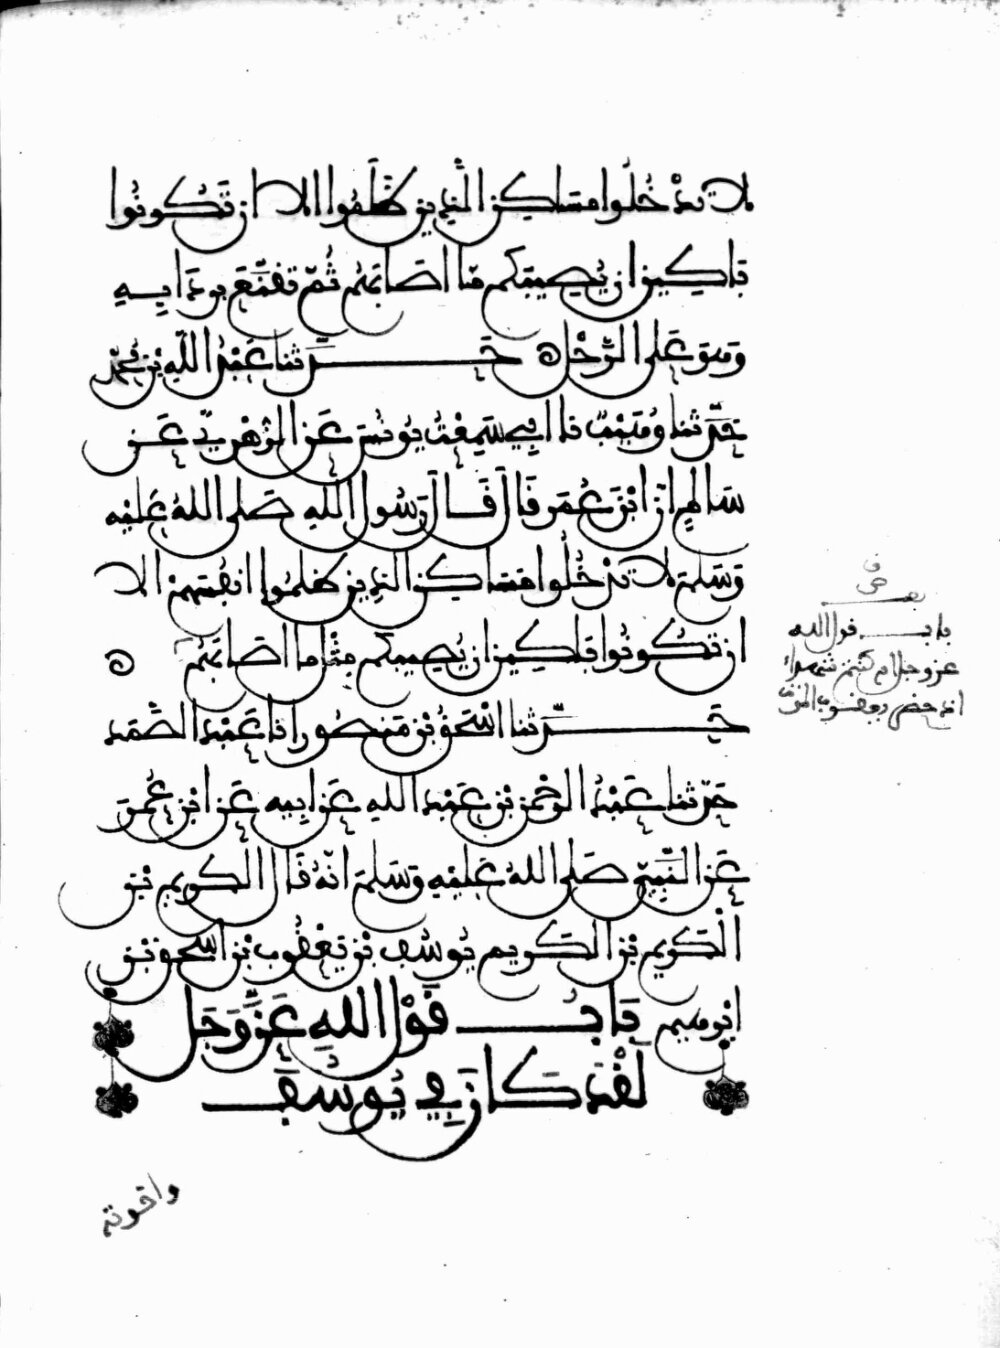 لا تدخلوا مساكن الذين ظلموا الا ان تكونوا
باكين ان يصيبكم ما اصابهم ثم تقنع بردايه
وهو على الرحل حدثنا عبد الله بن محمد
حدثنا وهب نا ابي سمعت يونس عن الزهري عن
سالم ان ابن عمر قال قال رسول الله صلى الله عليه
وسلم لا تدخلوا مساكن الذين ظلموا انفسهم الا
ان تكونوا باكين ان يصيبكم مثل ما اصابهم
حدثنا اسحق بن منصور انا عبد الصمد
حدثنا عبد الرحمن بن عبد الله عن ابيه عن ابن عمر
عن النبي صلى الله عليه وسلم انه قال الكريم بن
الكريم بن الكريم يوسف بن يعقوب بن اسحق بن
ابرهيم باب قول الله عز وجل
لقد كان في يوسف
باب قول الله
عز وجل ام كنتم شهداء
اذ حضر يعقوب الموت
واخوته